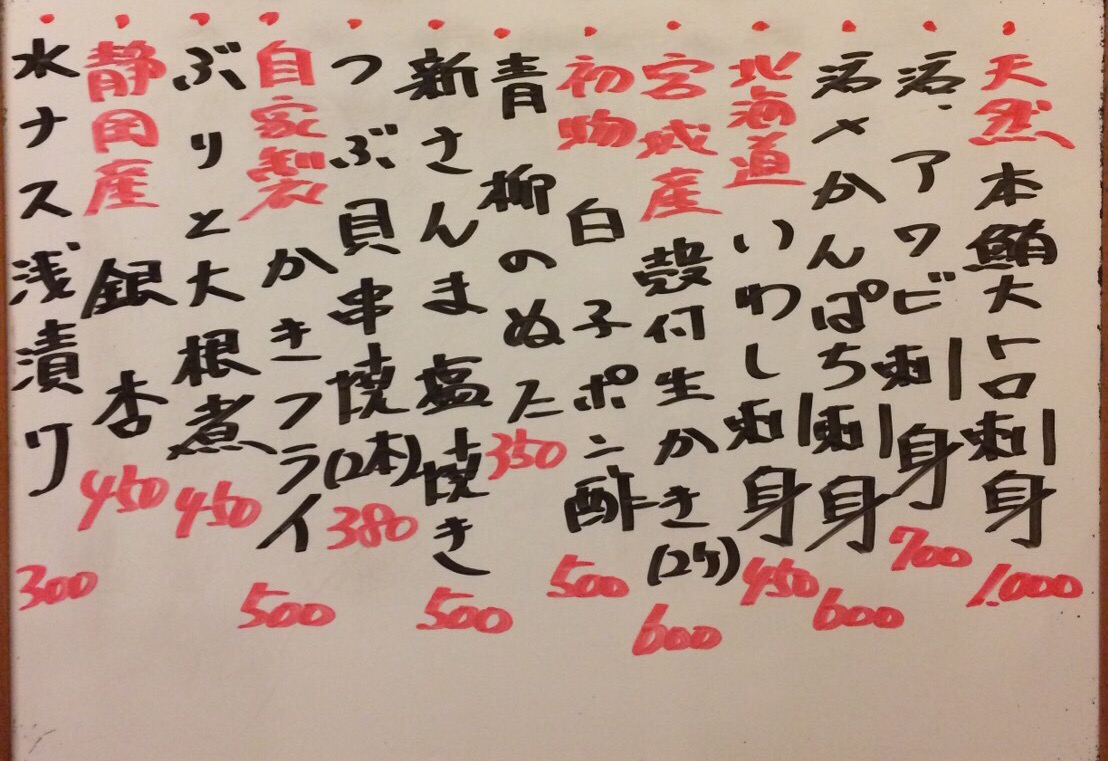 天然 本鮪大トロ刺身 1.000
活、アワビ刺身 700
活〆かんぱち刺身 600
北海道 いわし刺身 450
宮城産 殻付生かき(2ケ) 600
初物 白子ポン酢 500
青柳のぬた 350
新さんま塩焼き 500
つぶ貝串焼(2本) 380
自家製 かきフライ 500
ぶりと大根煮 450
静岡産 銀杏 450
水ナス浅漬け 300